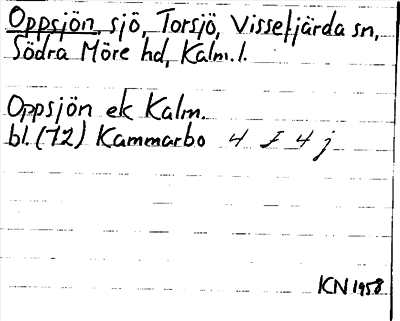 Oppsjön, sjö, Torsjö, Vissefjärda sn,
Södra Möre hd, Kalm. l.
Oppsjön ek Kalm.
bl. (72) Kammarbo 4 F 4 j
KN 1958